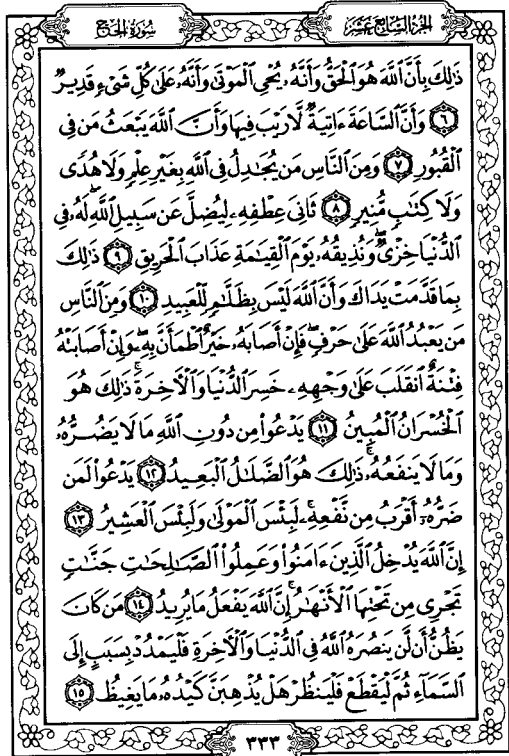 الجزء السابع عشر
سورة الحج
ذَٰلِكَ بِأَنَّ ٱللَّهَ هُوَ ٱلْحَقُّ وَأَنَّهُۥ يُحْيِ ٱلْمَوْتَىٰ وَأَنَّهُۥ عَلَىٰ كُلِّ شَىْءٍ قَدِيرٌ
٦ وَأَنَّ ٱلسَّاعَةَ ءَاتِيَةٌ لَّا رَيْبَ فِيهَا وَأَنَّ ٱللَّهَ يَبْعَثُ مَن فِى
ٱلْقُبُورِ ٧ وَمِنَ ٱلنَّاسِ مَن يُجَٰدِلُ فِى ٱللَّهِ بِغَيْرِ عِلْمٍ وَلَا هُدًى
وَلَا كِتَٰبٍ مُّنِيرٍ ٨ ثَانِىَ عِطْفِهِۦ لِيُضِلَّ عَن سَبِيلِ ٱللَّهِ لَهُۥ فِى
ٱلدُّنْيَا خِزْىٌ وَنُذِيقُهُۥ يَوْمَ ٱلْقِيَٰمَةِ عَذَابَ ٱلْحَرِيقِ ٩ ذَٰلِكَ
بِمَا قَدَّمَتْ يَدَاكَ وَأَنَّ ٱللَّهَ لَيْسَ بِظَلَّٰمٍ لِّلْعَبِيدِ ١٠ وَمِنَ ٱلنَّاسِ
مَن يَعْبُدُ ٱللَّهَ عَلَىٰ حَرْفٍ فَإِنْ أَصَابَهُۥ خَيْرٌ ٱطْمَأَنَّ بِهِۦ وَإِنْ أَصَابَتْهُ
فِتْنَةٌ ٱنقَلَبَ عَلَىٰ وَجْهِهِۦ خَسِرَ ٱلدُّنْيَا وَٱلْءَاخِرَةَ ذَٰلِكَ هُوَ
ٱلْخُسْرَانُ ٱلْمُبِينُ ١١ يَدْعُوا۟ مِن دُونِ ٱللَّهِ مَا لَا يَضُرُّهُۥ
وَمَا لَا يَنفَعُهُۥ ذَٰلِكَ هُوَ ٱلضَّلَٰلُ ٱلْبَعِيدُ ١٢ يَدْعُوا۟ لَمَن
ضَرُّهُۥٓ أَقْرَبُ مِن نَّفْعِهِۦ لَبِئْسَ ٱلْمَوْلَىٰ وَلَبِئْسَ ٱلْعَشِيرُ ١٣
إِنَّ ٱللَّهَ يُدْخِلُ ٱلَّذِينَ ءَامَنُوا۟ وَعَمِلُوا۟ ٱلصَّٰلِحَٰتِ جَنَّٰتٍ
تَجْرِى مِن تَحْتِهَا ٱلْأَنْهَٰرُ إِنَّ ٱللَّهَ يَفْعَلُ مَا يُرِيدُ ١٤ مَن كَانَ
يَظُنُّ أَن لَّن يَنصُرَهُ ٱللَّهُ فِى ٱلدُّنْيَا وَٱلْءَاخِرَةِ فَلْيَمْدُدْ بِسَبَبٍ إِلَى
ٱلسَّمَآءِ ثُمَّ لْيَقْطَعْ فَلْيَنظُرْ هَلْ يُذْهِبَنَّ كَيْدُهُۥ مَا يَغِيظُ ١٥
٣٣٣